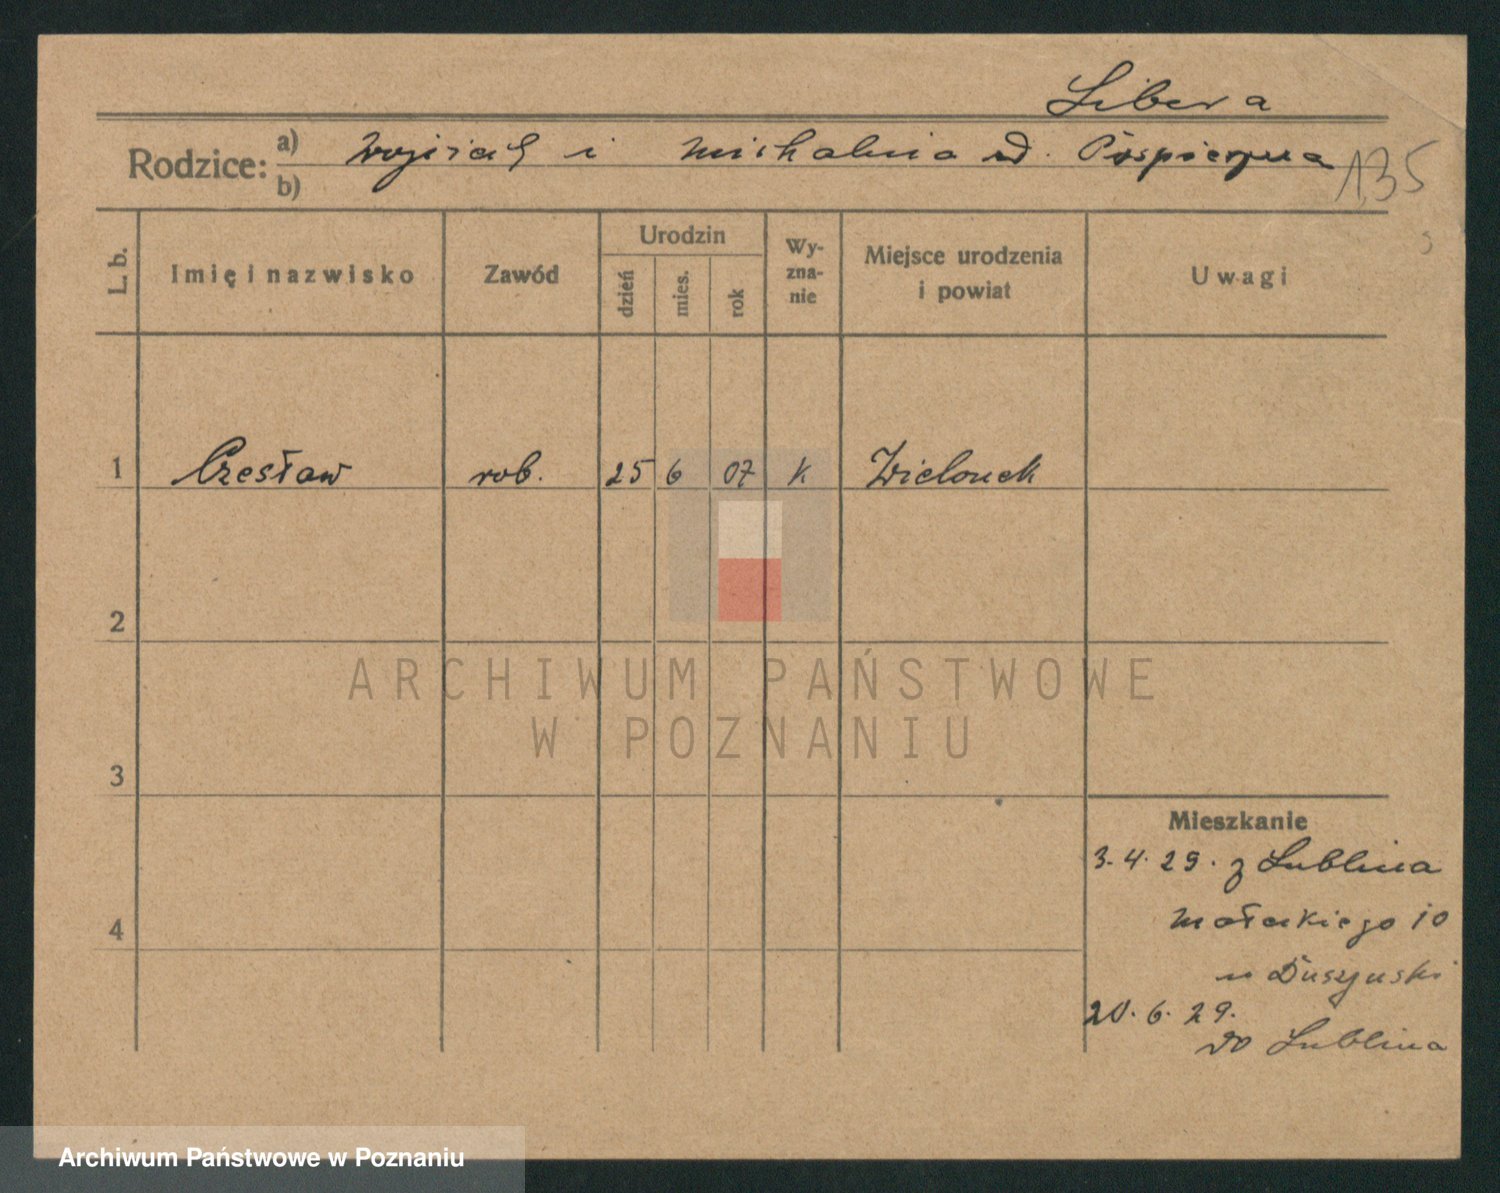 Libera
Rodzice: a) Wojciech i Michalina d.
b)
135
L. b. Imię i nazwisko Zawód Urodzin dzień mies. rok Wy-zna-nie Miejsce urodzenia i powiat Uwagi
1 Czesław rob. 25 6 07 k Wielonek
2
ARCHIWUM PAŃSTWOWE
W POZNANIU
3
Mieszkanie
3. 4. 29. z Lublina
Małeckiego 10
4
u Duszyński
20. 6. 29.
do Lublina
Archiwum Państwowe w Poznaniu